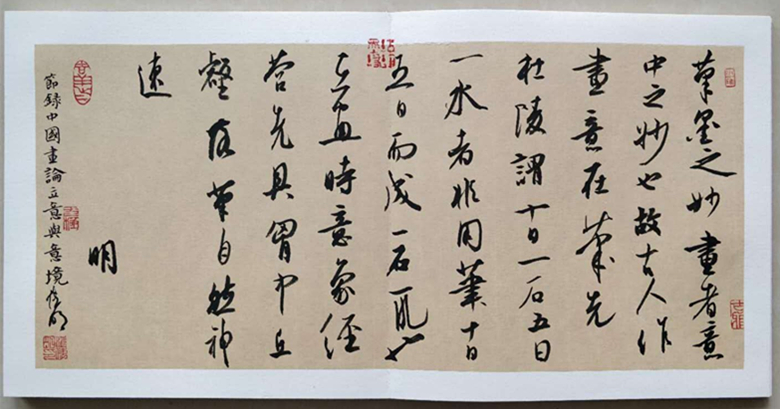 筆墨之妙畫者意
中之妙也故古人作
畫意在筆先
杜陵謂十日一石五日
一水者非用筆十日
五日而成一石一也
畫時意象經
營先具胸中丘
壑落筆自然神
速
明
節錄中國畫論立意與意境明